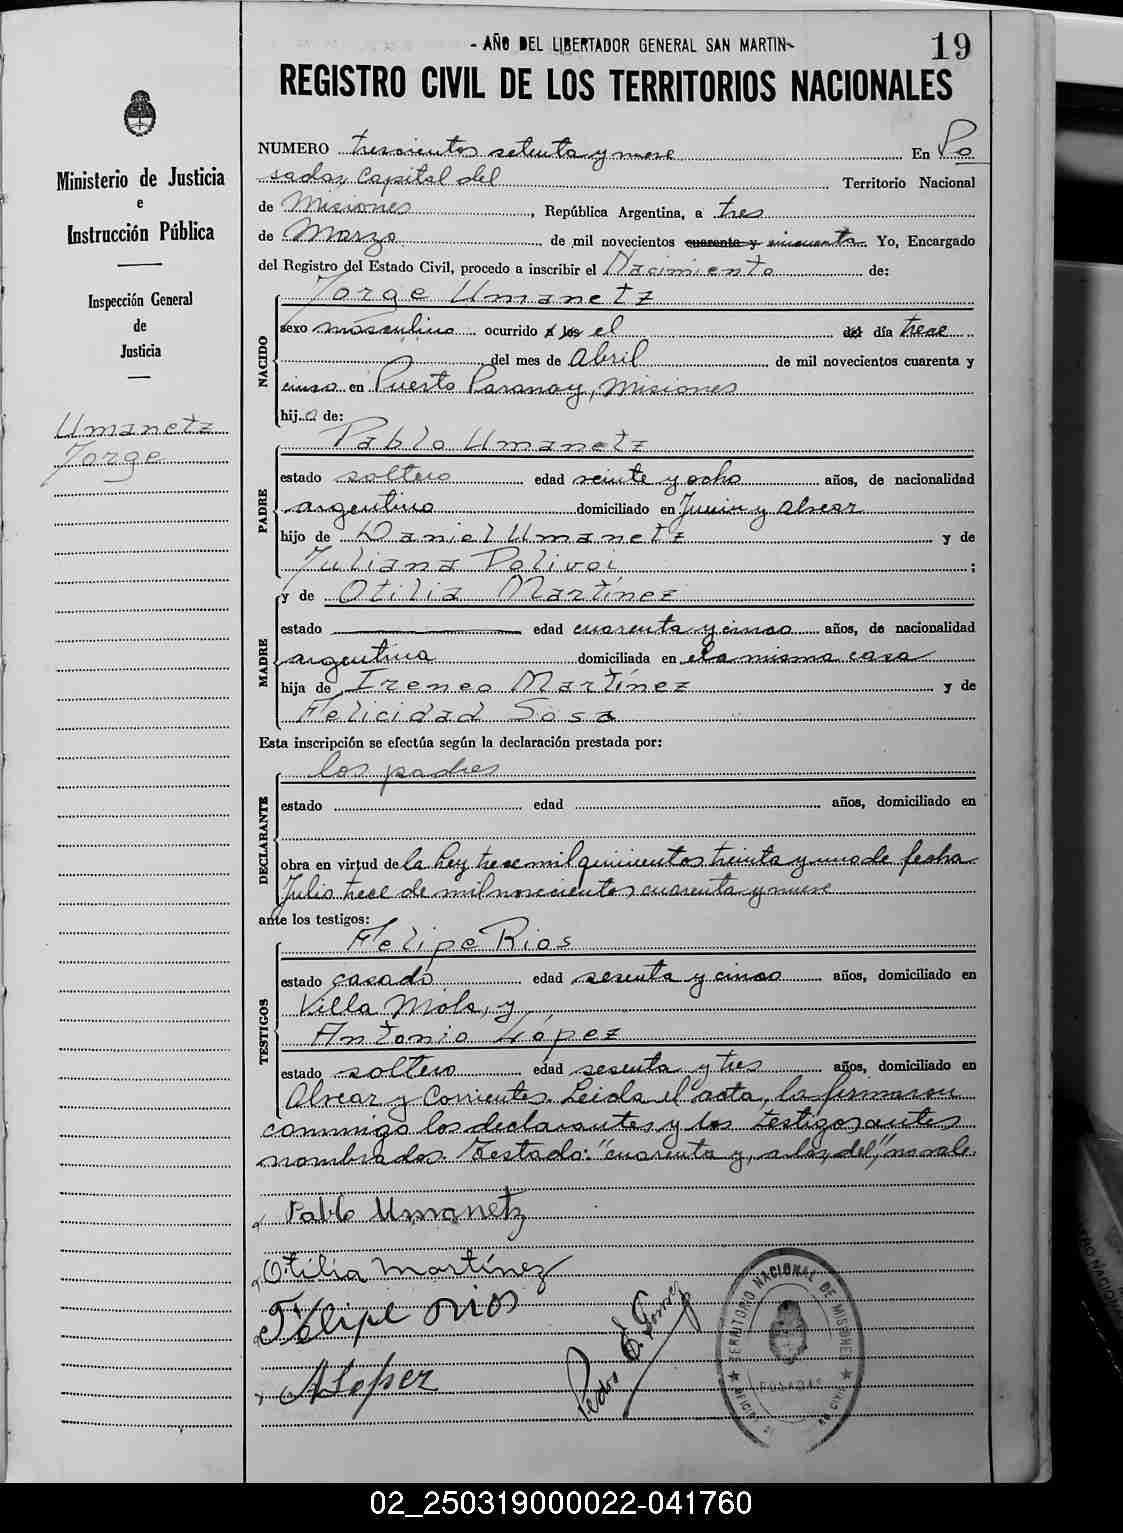 - AÑO DEL LIBERTADOR GENERAL SAN MARTIN-
19
REGISTRO CIVIL DE LOS TERRITORIOS NACIONALES
Ministerio de Justicia
e
Instrucción Pública
Inspección General
de
Justicia
Umanetz
Jorge
NUMERO trescientos setenta y nueve En Po
sadas, Capital del Territorio Nacional
de Misiones, República Argentina, a tres
de Marzo de mil novecientos cuarenta y cincuenta. Yo, Encargado
del Registro del Estado Civil, procedo a inscribir el Nacimiento de:
NACIDO
Jorge Umanetz
sexo masculino ocurrido a las el del día trece
del mes de Abril de mil novecientos cuarenta y
cinco en Puerto Paranay, Misiones
hijo de:
PADRE
Pablo Umanetz
estado soltero edad veinte y ocho años, de nacionalidad
argentino domiciliado en Junin y Alvear
hijo de Daniel Umanetz y de
Juliana Polivoi ;
MADRE
y de Otilia Martínez
estado edad cuarenta y cinco años, de nacionalidad
argentina domiciliada en ela misma casa
hija de Ireneo Martínez y de
Felicidad Sosa
Esta inscripción se efectúa según la declaración prestada por:
DECLARANTE
los padres
estado edad años, domiciliado en
obra en virtud de la Ley trece mil quinientos treinta y uno de fecha
Julio trece de mil novecientos cuarenta y nueve
ante los testigos:
TESTIGOS
Felipe Rios
estado casado edad sesenta y cinco años, domiciliado en
Villa Mola, y
Antonio López
estado soltero edad sesenta y tres años, domiciliado en
Alvear y Corrientes. Leida el acta, la firmaron
conmigo los declarantes y los testigos antes
nombrados. Testado: "cuarenta y, a las, del," no vale.
Pablo Umanetz
Otilia Martínez
Felipe Rios
A López
Pedro E.
TERRITORIO NACIONAL DE MISIONES
POSADAS
02_250319000022-041760